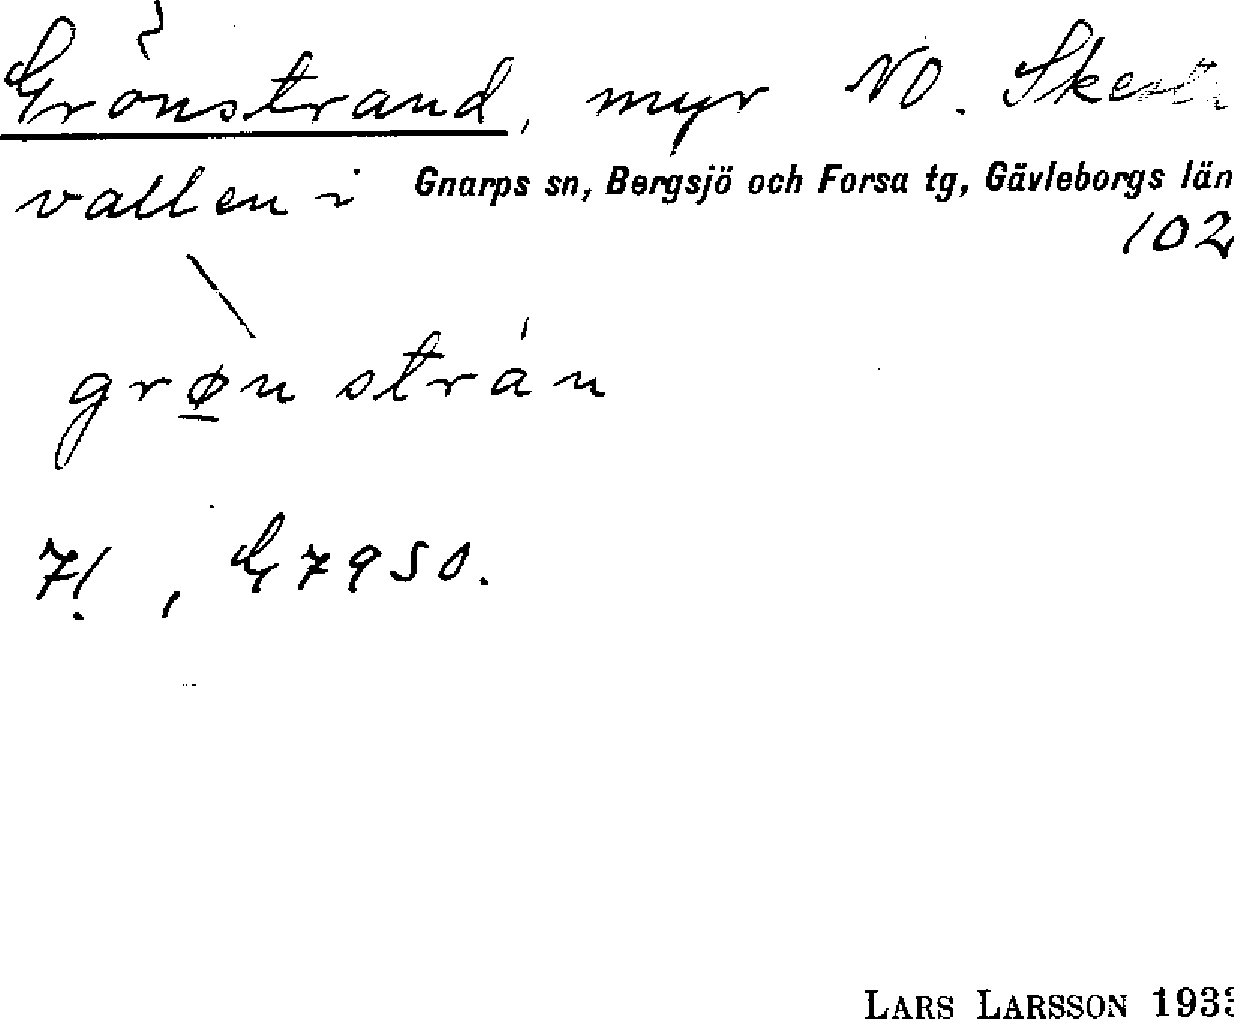 Grönstrand, myr NO.
vallen i Gnarps sn, Bergsjö och Forsa tg, Gävleborgs län
102
grøn strán
7!, G 7950.
LARS LARSSON 1933